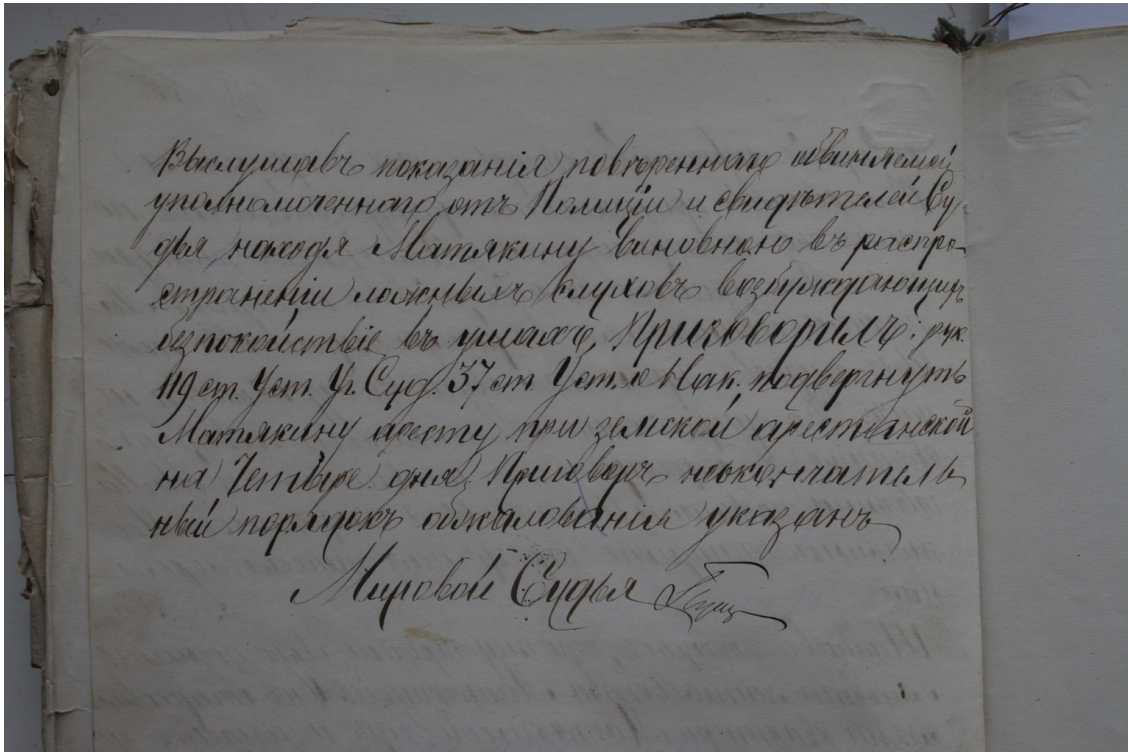 Выслушавъ показанія повѣреннаго обвиняемой
уполномоченнаго отъ Полиціи и свидѣтелей Су-
дья, находя Матякину виновною въ распро-
страненіи ложныхъ слуховъ возбуждающихъ
безпокойствіе въ умахъ, Приговорилъ: рук.
119 ст. Уст. Уг. Суд. 37 ст. Уст. о Нак. подвергнуть
Матякину аресту при земской арестанской
на Четыре дня. Приговоръ неокончатель
ный порядокъ обжалованія указанъ
Мировой Судья